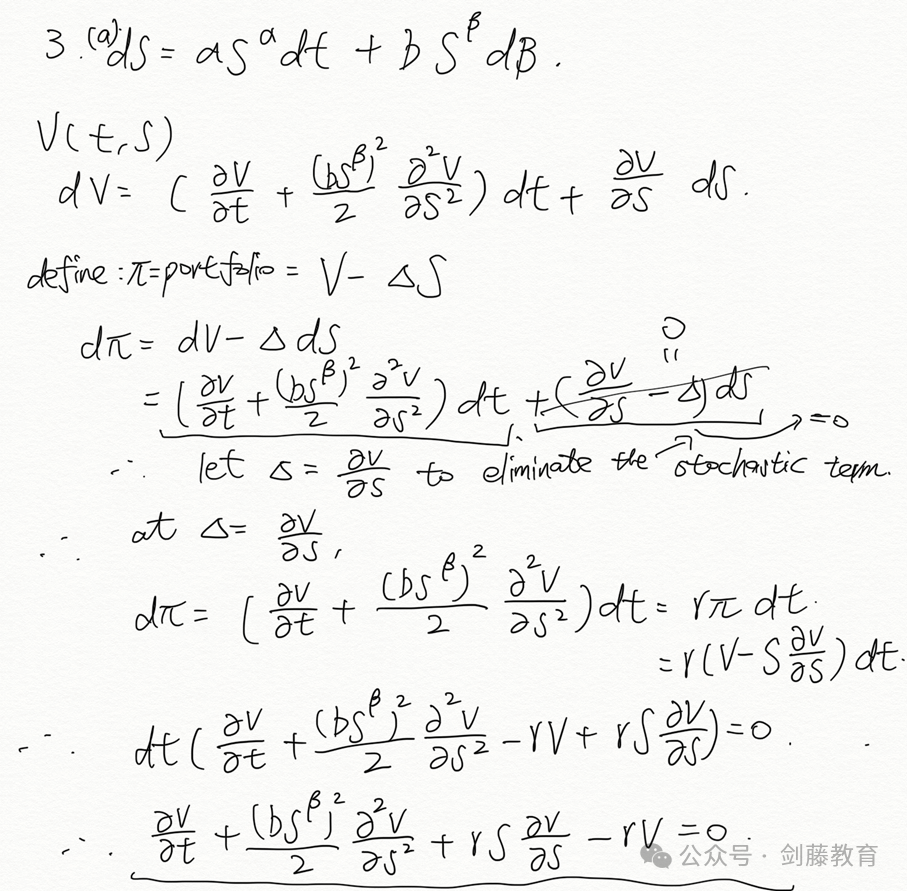 3. (a). dS = aS^α dt + b S^β dB.
V(t, S)
dV = ( ∂V/∂t + (bS^β)^2/2 ∂²V/∂S² ) dt + ∂V/∂S dS.
define : π = portfolio = V - ΔS
dπ = dV - Δ dS
0
= ( ∂V/∂t + (bS^β)^2/2 ∂²V/∂S² ) dt + ( ∂V/∂S - Δ) dS
= 0
∴ let Δ = ∂V/∂S to eliminate the stochastic term.
∴ at Δ = ∂V/∂S,
dπ = ( ∂V/∂t + (bS^β)^2/2 ∂²V/∂S² ) dt = rπ dt.
= r(V - S ∂V/∂S) dt.
∴ dt ( ∂V/∂t + (bS^β)^2/2 ∂²V/∂S² - rV + rS ∂V/∂S) = 0.
∴ ∂V/∂t + (bS^β)^2/2 ∂²V/∂S² + rS ∂V/∂S - rV = 0.
公众号 · 剑藤教育